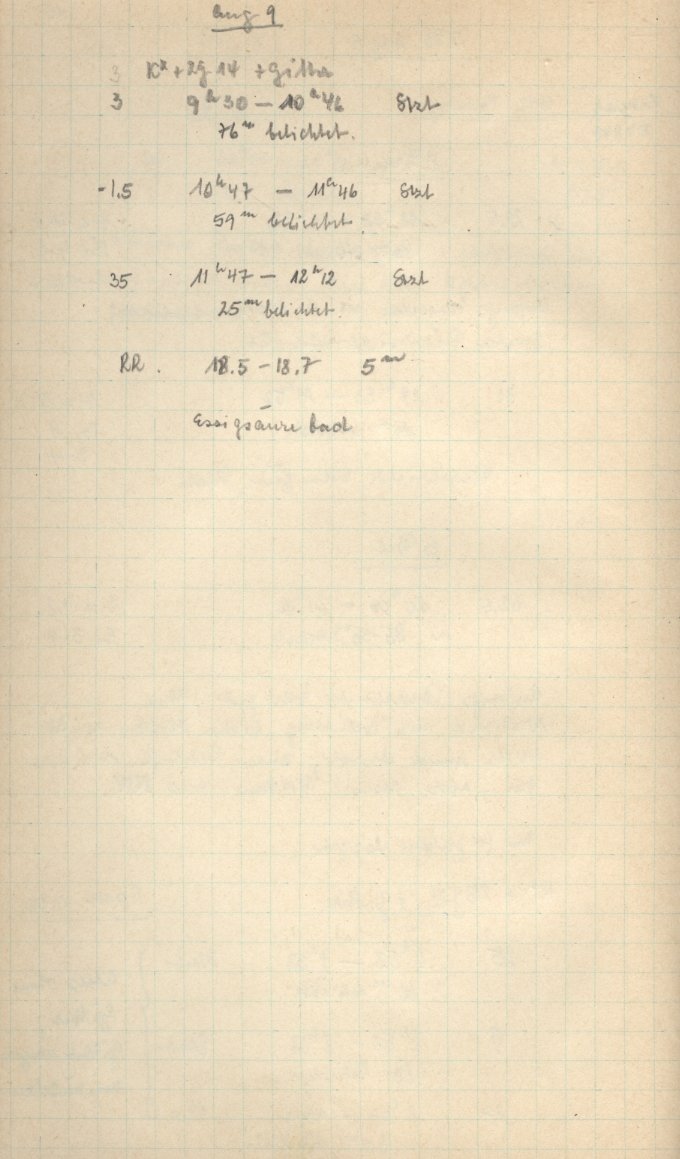 Aug 9
3 K + 2g 14 + Gitter
3 9h30 — 10h46
76m belichtet.
-1.5 10h47 — 11h46
59m belichtet.
35 11h47 — 12h12
25m belichtet.
RR. 18.5 - 18.7 5m
Essigsäure bad